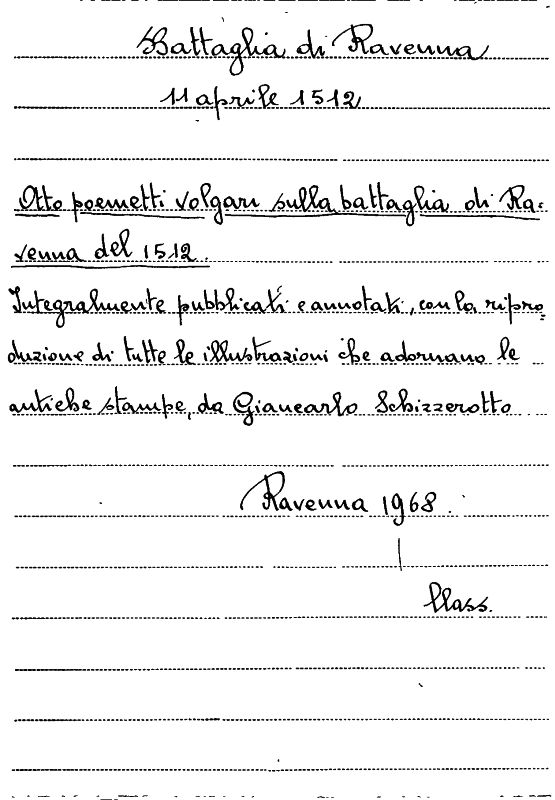 Battaglia di Ravenna
11 aprile 1512
Otto poemetti volgari sulla battaglia di Ra-
venna del 1512.
Integralmente pubblicati e annotati, con la ripro-
duzione di tutte le illustrazioni che adornano le
antiche stampe, da Giancarlo Schizzerotto
Ravenna 1968.
Class.